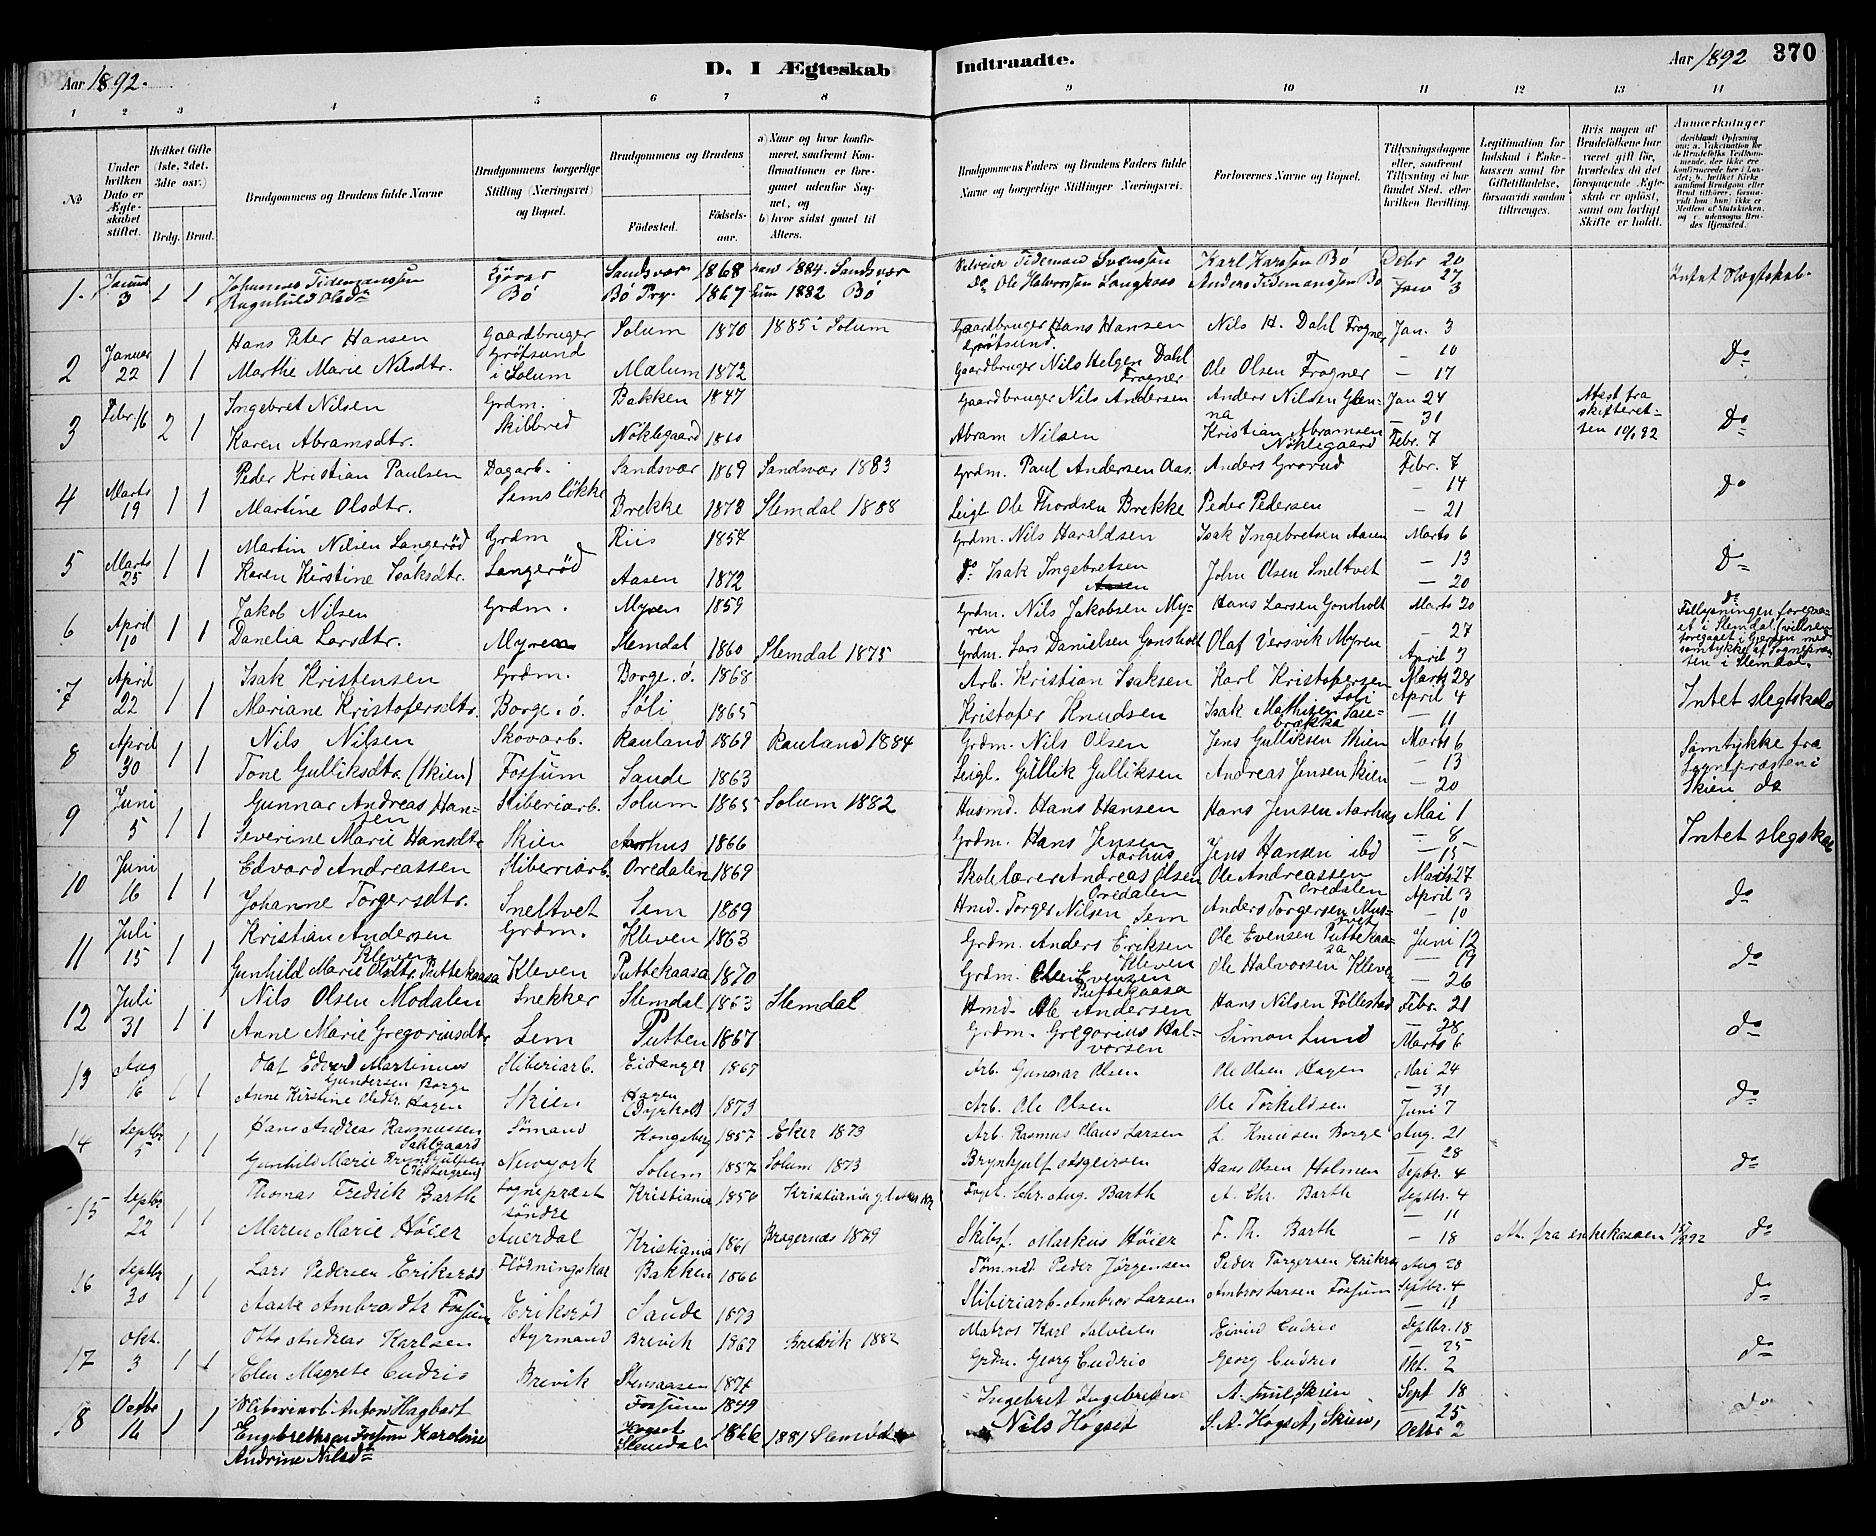 Aar 1892.
D. I Ægteskab Indtraadte.
Aar 1892 370
1 2 3 4 5 6 7 8 9 10 11 12 13 14
No
Under hvilken Dato er Ægteskabet stiftet.
Hvilket Gifte (1ste, 2det, 3die osv.)
Brdg. Brud.
Brudgommens og Brudens fulde Navne
Brudgommens borgerlige Stilling (Næringsvei) og Bopæl.
Brudgommens og Brudens
Fødested. Fødselsaar.
a) Naar og hvor konfirmeret, saafremt Konfirmationen er foregaaet udenfor Sognet, og
b) hvor sidst gaaet til Alters.
Brudgommens Faders og Brudens Faders fulde Navne og borgerlige Stillinger (Næringsvei).
Forlovernes Navne og Bopæl.
Tillysningsdagene eller, saafremt Tillysning ei har fundet Sted, efter hvilken Bevilling.
Legitimation for Indskud i Enkekassen samt for Giftetilladelse, forsaavidt saadan tiltrænges.
Hvis nogen af Brudefolkene har været gift før, hvorledes da det foregaaende Ægteskab er opløst, samt om lovligt Skifte er holdt.
Anmærkninger
1. Januar 3 1 1 Johannes Tidemansen Sandsvær 1868 ham 1884 Sandsvær Tideman Svensen Karl Karlsen Bø Debr 20
Ragnhild Olsdr Bø Bø Prg. 1867 hun 1882 Bø Do Ole Halvorsen Langkaas Anders Tidemansen Bø 27 Jan 3 Intet Slægtskab.
2 Januar 22 1 1 Hans Peter Hansen Gaardbruger Solum 1870 1885 i Solum Gaardbruger Hans Hansen Grøtsund Nils H. Dahl Frogner Jan. 3
Marthe Marie Nilsdtr. Grøtsund i Solum Mælum 1872 Gaardbruger Nils Helgen Dahl Frogner Ole Olsen Frogner — 10 — 17 Do
3 Febr. 16 2 1 Ingebret Nilsen Grdm. Bakken 1847 Gaardbruger Nils Andersen Anders Nilsen Glenna Jan 24
Karen Abramsdtr. Skilbred Nøklegaard 1860 Abram Nilsen Kristian Abramsen Nøklegaard — 31 Febr. 7 Attest fra skifteretten 10/2 92 Do
4 Marts 19 1 1 Peder Kristian Paulsen Dagarb. Sandsvær 1869 Sandsvær 1883 Grdm. Paul Andersen Aas. Anders Grorud Febr. 7
Martine Olsdtr. Semsløkke Brekke 1873 Slemdal 1888 Leigl. Ole Thordsen Brekke Peder Pedersen — 14 — 21 do
5 Marts 25 1 1 Martin Nilsen Langerød Grdm Riis 1857 Grdm. Nils Haraldsen Isak Ingebretsen Aasen Marts 6
Karen Kirstine Isaksdtr. Langerød Aasen 1872 do. Isak Ingebretsen Aasen John Olsen Sneltvet — 13 — 20 Do
6 April 10 1 1 Jakob Nilsen Grdm. Myren 1859 Grdm. Nils Jakobsen Myren Hans Larsen Gonsholt Marts 20
Danelia Larsdtr. Myren Slemdal 1860 Slemdal 1875 Grdm. Lars Danielsen Gonsholt Olaf Versvik Myren — 27 April 3
do Tillysningen foregaaet i Slemdal (vielsen foregaaet i Gjerpen med samtykke af Sognepræsten i Slemdal.
7 April 22 1 1 Isak Kristensen Grdm. Borge. ø. 1868 Arb. Kristian Isaksen Karl Kristofersen Søli Marts 28
Mariane Kristofersdtr. Borge. ø. Søli 1865 Kristofer Knudsen Isak Mathisen April 4 — 11 Intet slegtskab
8 April 30 1 1 Nils Nilsen Skovarb. Rauland 1869 Rauland 1884 Grdm. Nils Olsen Jens Gulliksen Skien Marts 6
Tone Gulliksdtr. (Skien) Fossum Saude 1863 Leigl. Gullik Gulliksen Andreas Jensen Skien — 13 — 20 Samtykke fra Sognepræsten i Skien do
9 Juni 5 1 1 Gunnar Andreas Hansen Sliberiarb. Solum 1865 Solum 1882 Husmd. Hans Hansen Hans Jensen Aarhus Mai 1
Severine Marie Hansdtr. Skien Aarhus 1866 Grdm. Hans Jensen Aarhus Jens Hansen ibd — 8 — 15 Intet slegskab
10 Juni 16 1 1 Edvard Andreassen Sliberiarb. Orredalen 1869 Skolelærer Andreas Olsen Orredalen Ole Andreassen Orredalen Marts 27
Johanne Torgersdtr. Sneltvet Sem 1869 Hmd. Torger Nilsen Sem Anders Torgersen April 3 — 10 do
11 Juli 15 1 1 Kristian Andersen Kleven Grdm. Kleven 1863 Grdm. Anders Eriksen Kleven Ole Evensen Puttekaasa Juni 12
Gunhild Marie Olsdtr. Puttekaasa Kleven Puttekaasa 1870 Grdm. Ole Evensen Puttekaasa Ole Halvorsen Kleven — 19 — 26 do
12 Juli 31 1 1 Nils Olsen Modalen Snekker Slemdal 1863 Slemdal Hmd. Ole Andersen Hans Nilsen Follestad Febr. 21
Anne Marie Gregoriusdtr. Sem Putten 1867 Grdm. Gregorius Halvorsen Simon Lund — 28 Marts 6 do
13 Aug 16 1 1 Olaf Edvard Martinius Gundersen Borge Sliberiarb. Eidanger 1867 Arb. Gunnar Olsen Ole Olsen Hagen Mai 24
Anne Kirstine Olsdr. Hagen Skien Hagen 1873 Arb. Ole Olsen Ole Torkildsen — 31 Juni 7 do
14 Septbr 5 1 1 Hans Andreas Rasmussen Sahlgaard Sømand Kongsberg 1857 Eker 1873 Arb. Rasmus Claus Larsen L. Knudsen Borge Aug. 21
Gunhild Marie Brynhjulfsen Newyork Solum 1857 Solum 1873 Brynhjulf Asgeirsen Hans Olsen Holmen — 28 Septbr. 4 do
15 Septbr 22 1 1 Thomas Fredrik Barth Sognepræst Kristiania 1856 Kristiania Foget. Chr. Aug. Barth A. Chr. Barth Septbr. 4
Maren Marie Høier søndre Auerdal Kristiania 1861 Bragernæs 1879 Skibsf. Markus Høier F. Th. Barth — 11 — 18 Att. fra enkekassen do
16 Septbr 30 1 1 Lars Pedersen Eriksrød Flødningskar Bakken 1866 Tømmd Peder Jørgensen Peder Torgersen Aug 28
Aaste Ambrosdtr Fossum Eriksrød Saude 1873 Sliberiarb. Ambros Larsen Ambros Larsen Fossum Septbr. 4 — 11 do
17 Okt. 3 1 1 Otto Andreas Karlsen Styrmand Brevik 1867 Brevik 1882 Matros Karl Salvesen Eivind Cudrio Septbr. 18
Elen Magrete Cudrio Brevik Stensaasen 1871 Grdm. Georg Cudrio Georg Cudrio — 25 Okt. 2 do
18 Octbr 16 1 1 Sliberiarb. Anton Hagbart Fossum 1849 Ingebret Ingebretsen A. Juul, Skien Sept 18
Engebrethsen Fossum Karoline Andrine Nilsdr Høgset Slemdal 1866 1881 Slemdal Nils Høgset S. A. Høgset, Skien, — 25 Octbr 2 do